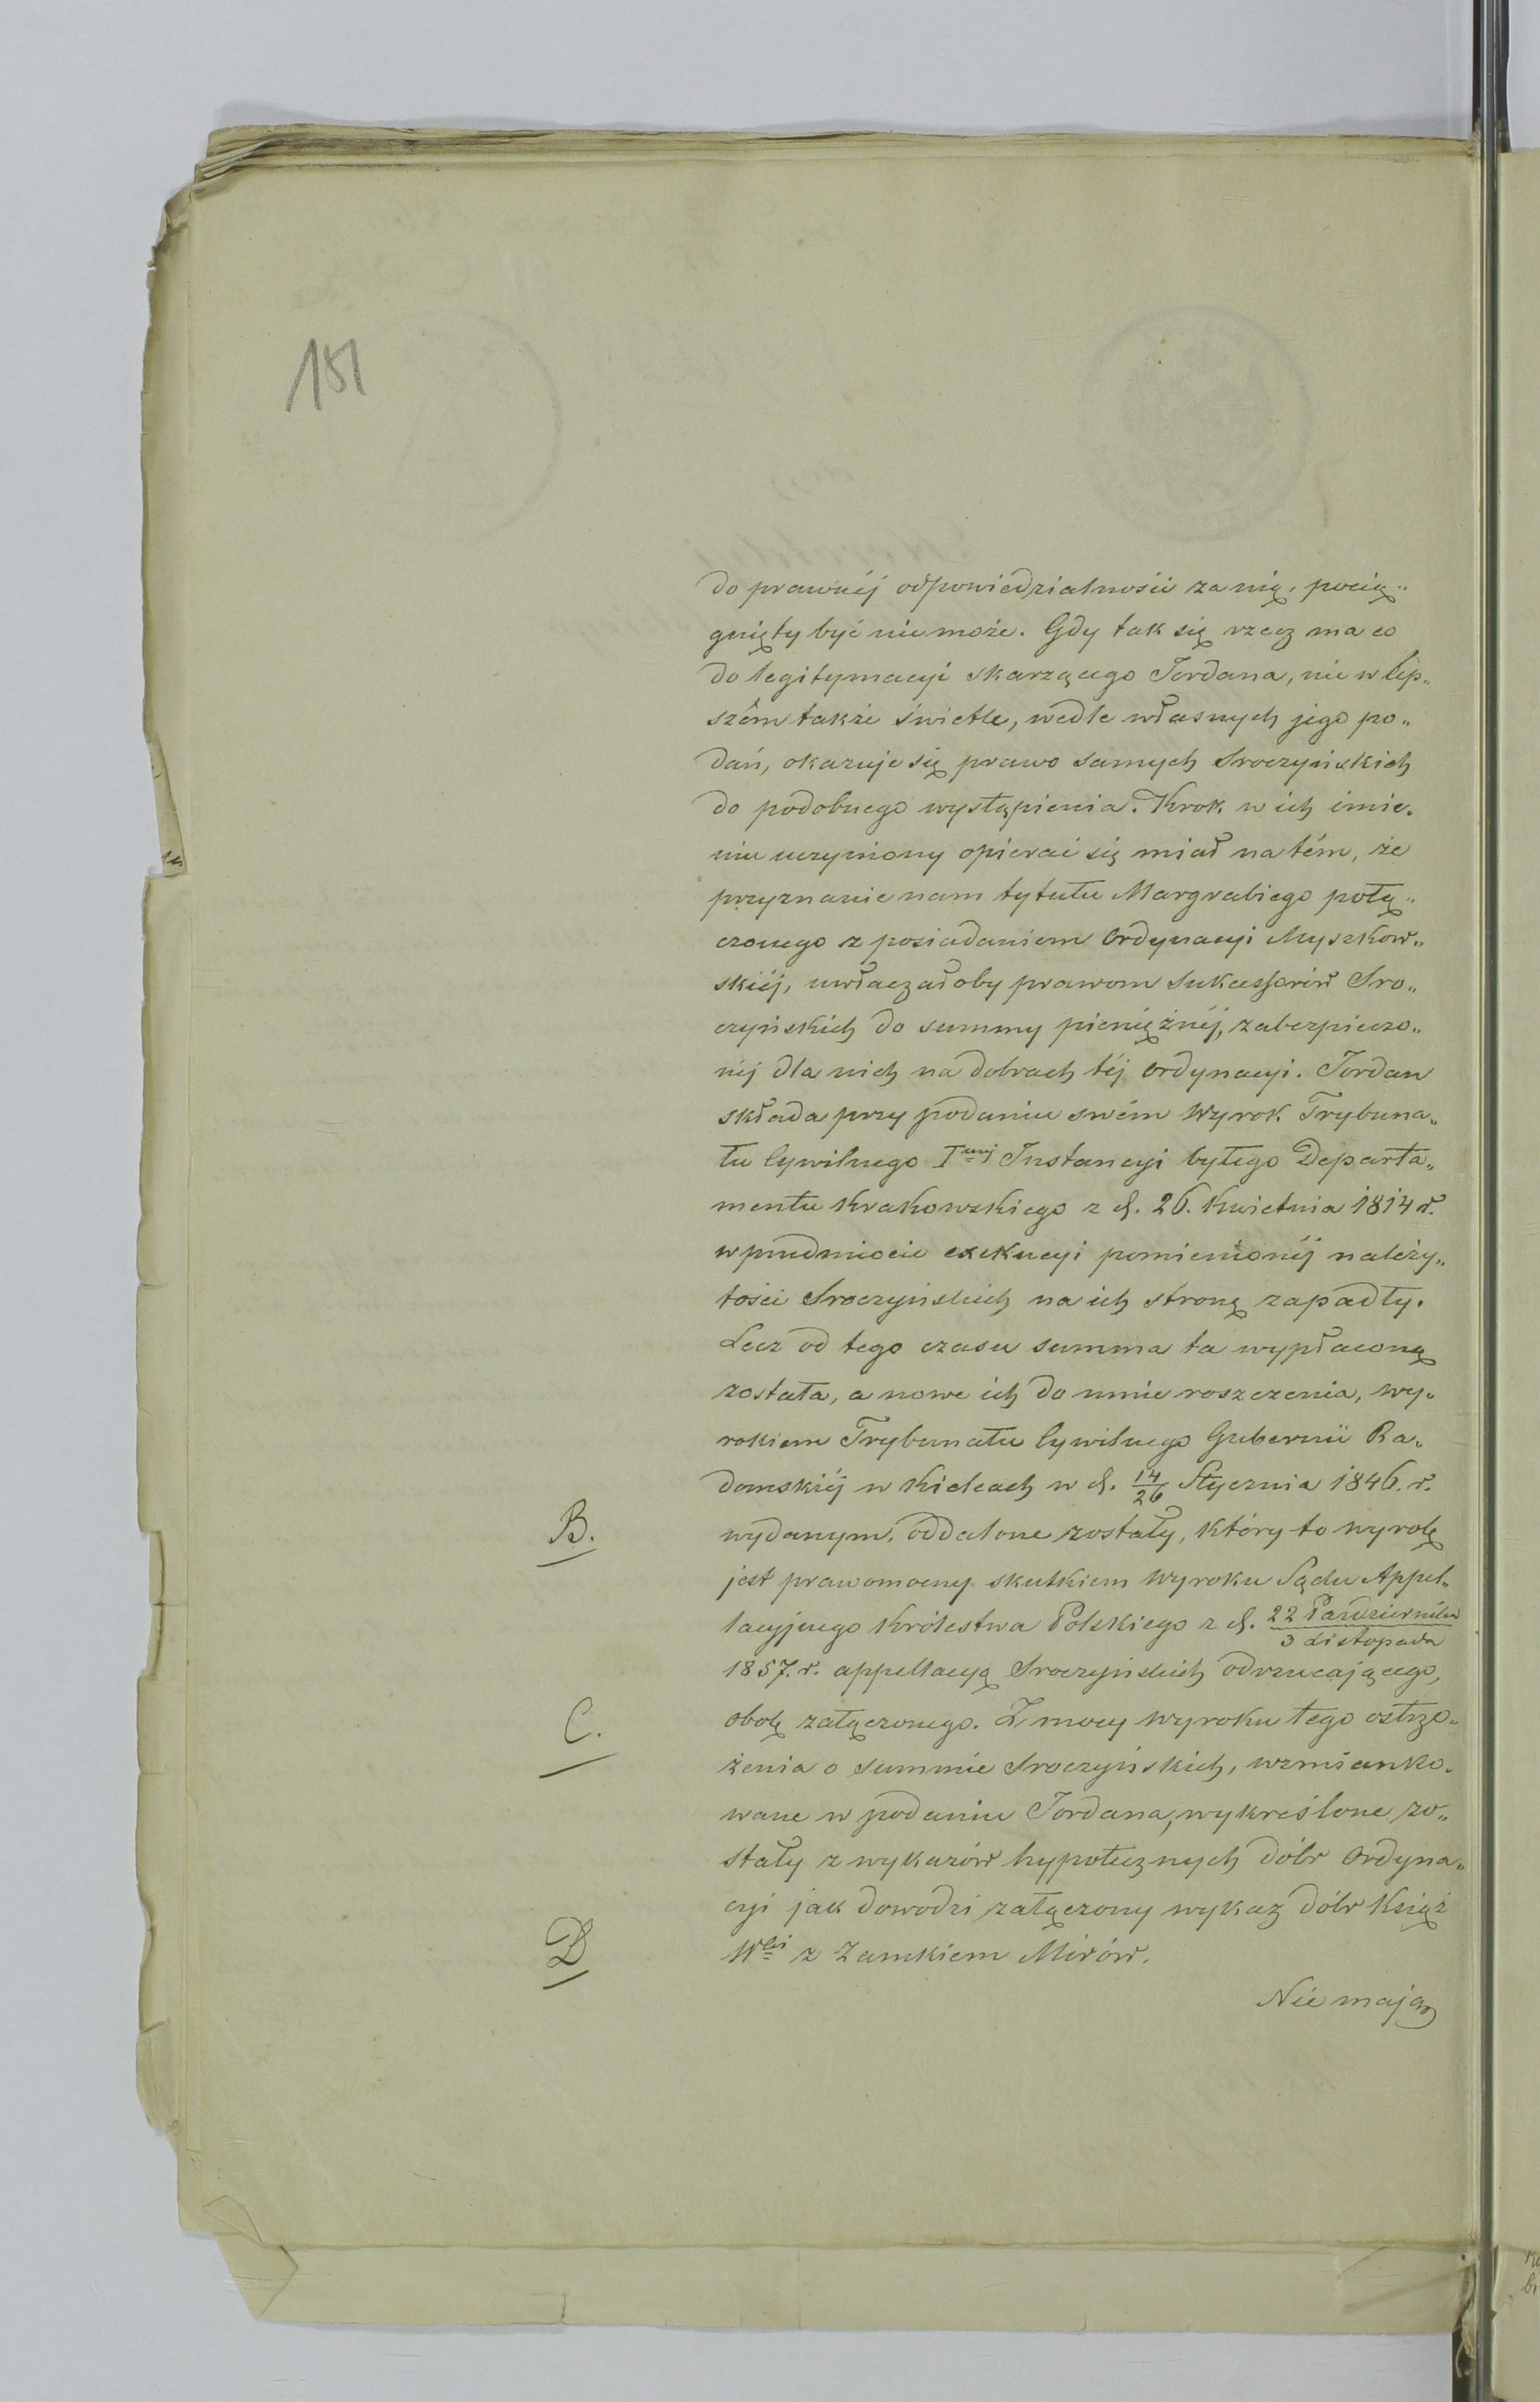 151
do prawnéj odpowiedzialności za nią, pocią„
gnięty być nie może. Gdy tak się rzecz ma co
do legitymacyi skarzącego Jordana, nie w lep„
szém także świetle, wedle własnych jego po„
dań, okazuje się prawo samych Sroczyńskich
do podobnego wystąpienia. Krok w ich imie„
niu uczyniony opierać się miał na tém, że
przyznanie nam tytułu Margrabiego połą„
czonego z posiadaniem Ordynacyi Myszkow„
skiéj, uwłaczałoby prawom Sukcessorów Sro„
czyńskich do summy pieniężnéj, zabezpieczo„
néj dla nich na dobrach téj Ordynacyi. Jordan
składa przy podaniu swém Wyrok Trybuna„
łu Cywilnego Iwszej Instancyi byłego Departa„
mentu Krakowskiego z d. 26. Kwietnia 1814 r.
w przedmiocie exekucyi pomienionéj należy„
tości Sroczyńskich na ich stronę zapadły.
Lecz od tego czasu summa ta wypłaconą
została, a nowe ich do mnie roszczenia, wy„
rokiem Trybunału Cywilnego Gubernii Ra„
domskiéj w Kielcach w d. 14/26 Stycznia 1846. r.
B. wydanym, oddalone zostały, który to wyrok
jest prawomocny skutkiem Wyroku Sądu Appel„
lacyjnego Królestwa Polskiego z d. 22 Października/3 Listopada
1857. r. appellacyą Sroczyńskich odrzucającego,
C. obok załączonego. Z mocy wyroku tego ostrze„
żenia o summie Sroczyńskich, wzmianko„
wane w podaniu Jordana, wykreślone zo„
stały z wykazów hypotecznych dóbr Ordyna„
cyi jak dowodzi załączony wykaz dóbr Książ
D Wlki z Zamkiem Mirów.
Nie mając